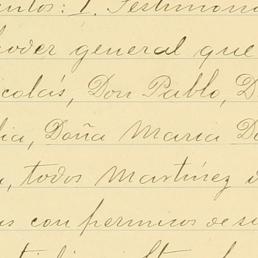 ntos: 1. Testimonio
poder general que
icolás, Don Pablo, D
lia, Doña Maria Do
, todos Martínez i
as con permisos de su